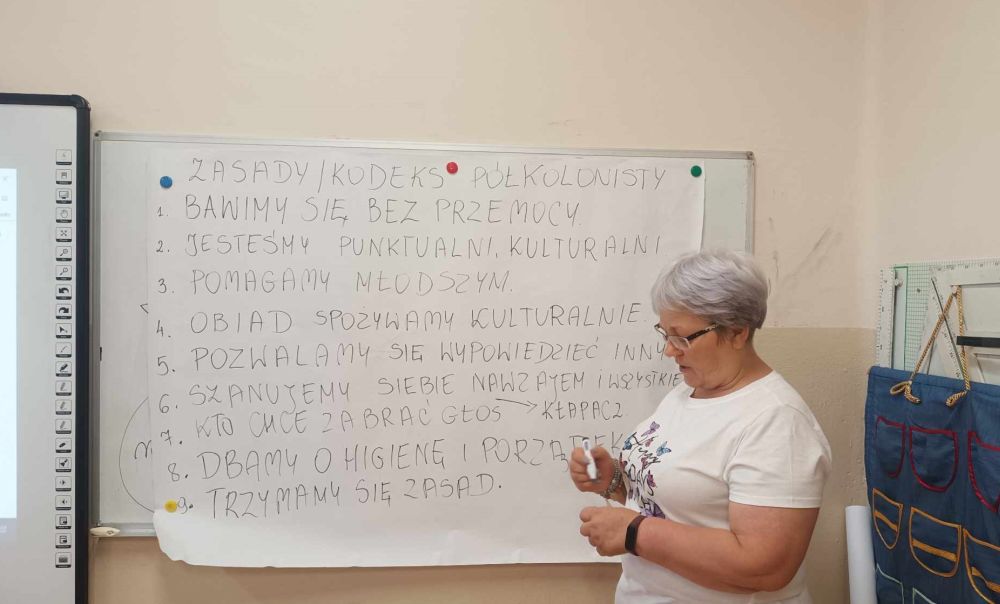 ZASADY/KODEKS PÓŁKOLONISTY
1. BAWIMY SIĘ BEZ PRZEMOCY.
2. JESTEŚMY PUNKTUALNI, KULTURALNI
3. POMAGAMY MŁODSZYM.
4. OBIAD SPOŻYWAMY KULTURALNIE.
5. POZWALAMY SIĘ WYPOWIEDZIEĆ INNY
6. SZANUJEMY SIEBIE NAWZAJEM I WSZYSTKIE
7. KTO CHCE ZABRAĆ GŁOS → KŁAPACZ.
8. DBAMY O HIGIENĘ I PORZĄDEK
9. TRZYMAMY SIĘ ZASAD.